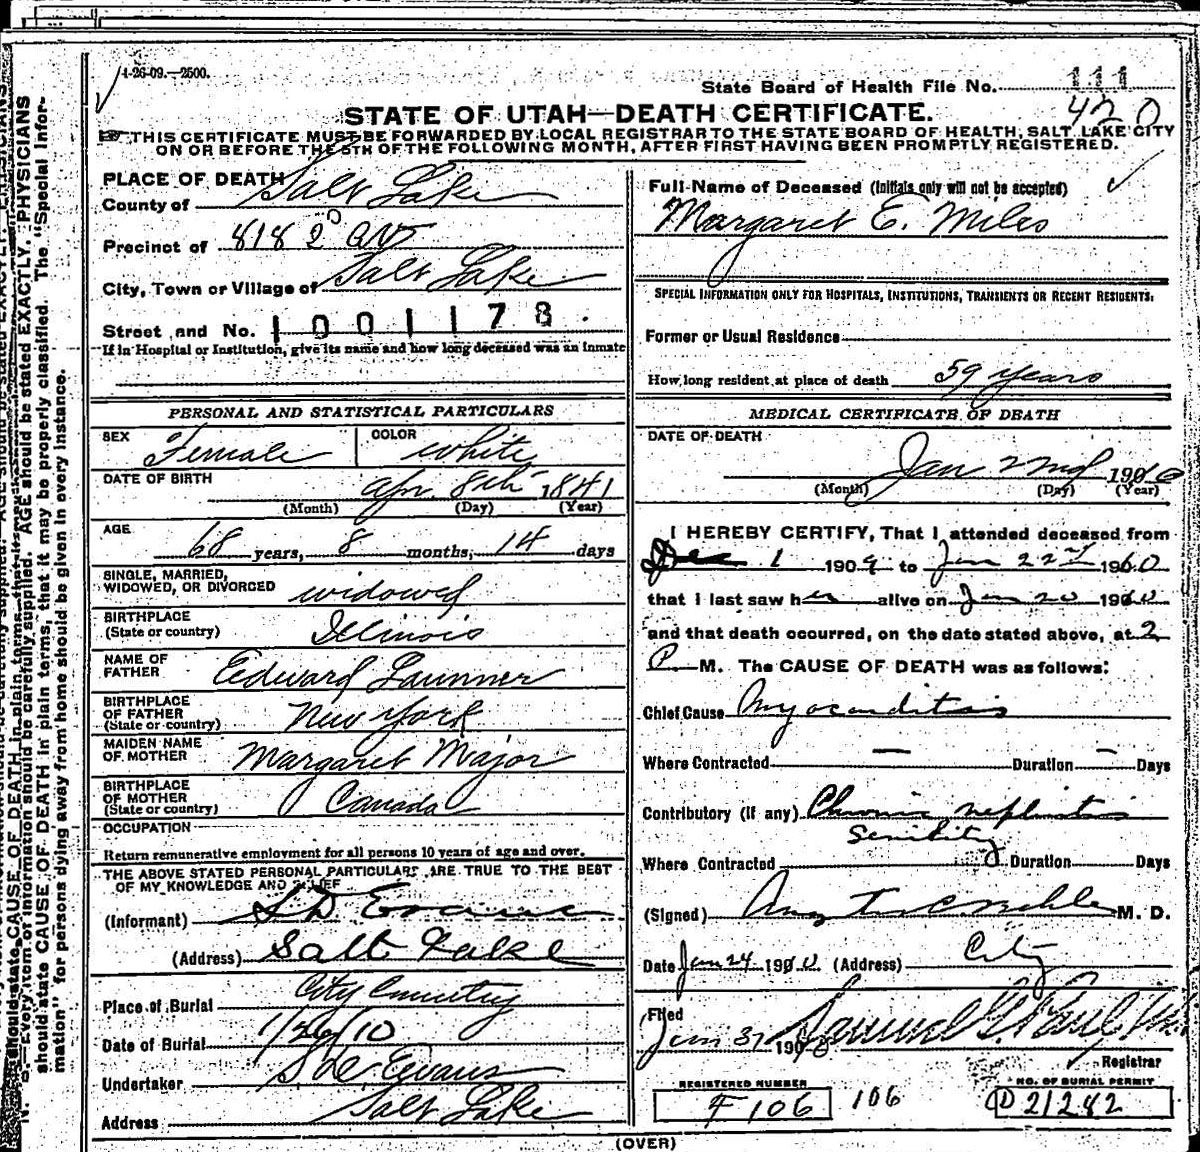 1-26-09.—2500.
State Board of Health File No. 111
420
STATE OF UTAH—DEATH CERTIFICATE.
THIS CERTIFICATE MUST BE FORWARDED BY LOCAL REGISTRAR TO THE STATE BOARD OF HEALTH, SALT LAKE CITY
ON OR BEFORE THE 5TH OF THE FOLLOWING MONTH, AFTER FIRST HAVING BEEN PROMPTLY REGISTERED.
PLACE OF DEATH
County of Salt Lake
Precinct of 818 2
City, Town or Village of Salt Lake
Street and No. 1001178
If in Hospital or Institution, give its name and how long deceased was an inmate
PERSONAL AND STATISTICAL PARTICULARS
SEX Female COLOR White
DATE OF BIRTH Apr 8th 1841
(Month) (Day) (Year)
AGE 68 years, 8 months, 14 days
SINGLE, MARRIED,
WIDOWED, OR DIVORCED widowed
BIRTHPLACE
(State or country) Illinois
NAME OF
FATHER Edward
BIRTHPLACE
OF FATHER
(State or country) New York
MAIDEN NAME
OF MOTHER Margaret Major
BIRTHPLACE
OF MOTHER
(State or country) Canada
OCCUPATION
Return remunerative employment for all persons 10 years of age and over.
THE ABOVE STATED PERSONAL PARTICULARS ARE TRUE TO THE BEST
OF MY KNOWLEDGE AND BELIEF
(Informant) S D Evans
(Address) Salt Lake
Place of Burial City Cemetery
Date of Burial 1/26/10
Undertaker S D Evans
Address Salt Lake
Full Name of Deceased (Initials only will not be accepted)
Margaret E. Miles
SPECIAL INFORMATION ONLY FOR HOSPITALS, INSTITUTIONS, TRANSIENTS OR RECENT RESIDENTS:
Former or Usual Residence
How long resident at place of death 59 years
MEDICAL CERTIFICATE OF DEATH
DATE OF DEATH
Jan 22nd 1910
(Month) (Day) (Year)
I HEREBY CERTIFY, That I attended deceased from
Dec 1 1909 to Jan 22nd 1910
that I last saw her alive on Jan 20 1910
and that death occurred, on the date stated above, at 2
P. M. The CAUSE OF DEATH was as follows:
Chief Cause Myocarditis
Where Contracted — Duration — Days
Contributory (if any) Chronic nephritis
Senility
Where Contracted Duration Days
(Signed) M. D.
Date Jan 24 1910 (Address) City
Filed
Jan 31 190 Samuel G. Paul
Registrar
REGISTERED NUMBER
F 106 106
NO. OF BURIAL PERMIT
D 21282
(OVER)
should state CAUSE OF DEATH in plain terms, that it may be properly classified. The "Special Infor-
mation" for persons dying away from home should be given in every instance.
N. B.—Every item of information should be carefully supplied. AGE should be stated EXACTLY. PHYSICIANS